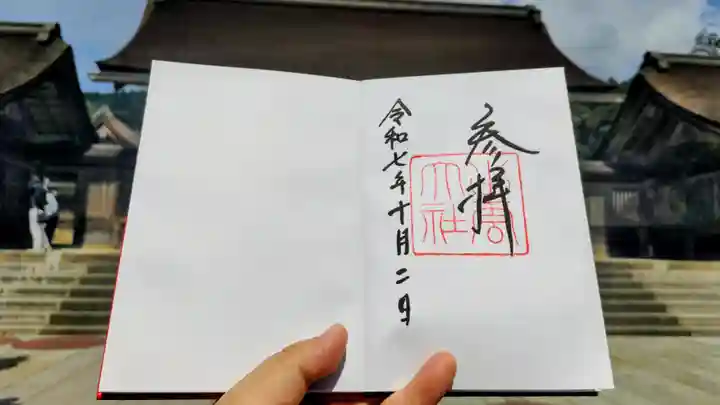 参拝
出雲
大社
令和七年十月二日